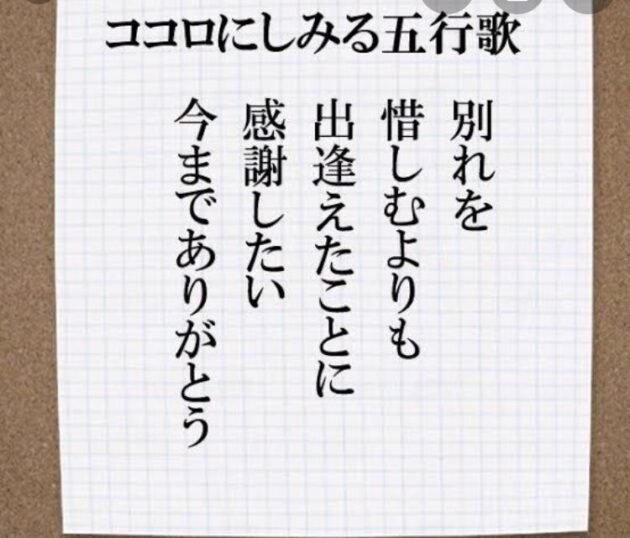 ココロにしみる五行歌
別れを
惜しむよりも
出逢えたことに
感謝したい
今までありがとう